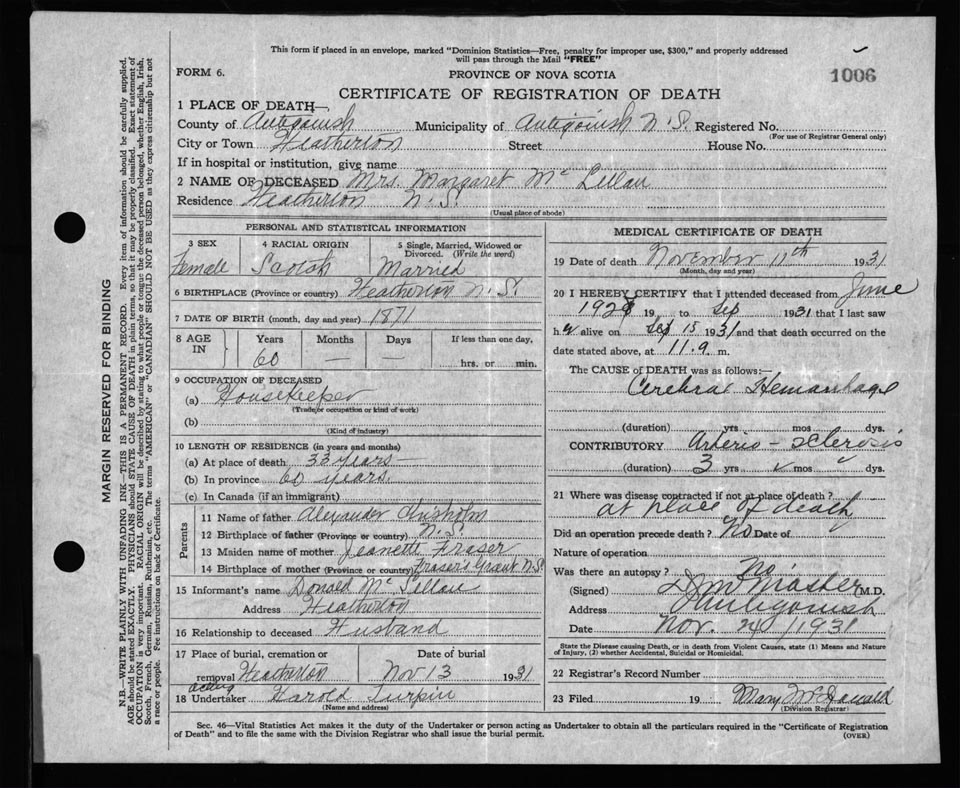 This form if placed in an envelope, marked "Dominion Statistics—Free, penalty for improper use, $300," and properly addressed
will pass through the Mail "FREE"
FORM 6.
PROVINCE OF NOVA SCOTIA
1006
CERTIFICATE OF REGISTRATION OF DEATH
1 PLACE OF DEATH—
County of Antigonish Municipality of Antigonish N.S. Registered No.
(For use of Registrar General only)
City or Town Heatherton Street House No.
If in hospital or institution, give name
2 NAME OF DECEASED Mrs. Margaret Mc Lellan
Residence Heatherton N.S.
(Usual place of abode)
PERSONAL AND STATISTICAL INFORMATION
3 SEX 4 RACIAL ORIGIN 5 Single, Married, Widowed or
Divorced. (Write the word)
Female Scotch Married
6 BIRTHPLACE (Province or country) Heatherton N.S.
7 DATE OF BIRTH (month, day and year) 1871
8 AGE IN Years Months Days If less than one day,
60 — — hrs. or min.
9 OCCUPATION OF DECEASED
(a) Housekeeper
(Trade, or occupation or kind of work)
(b)
(Kind of industry)
10 LENGTH OF RESIDENCE (in years and months)
(a) At place of death 33 years
(b) In province 60 years.
(c) In Canada (if an immigrant)
Parents
11 Name of father Alexander Chisholm
12 Birthplace of father (Province or country) N.S.
13 Maiden name of mother Jeanette Fraser
14 Birthplace of mother (Province or country) Fraser's Grant N.S.
15 Informant's name Donald Mc Lellan
Address Heatherton
16 Relationship to deceased Husband
17 Place of burial, cremation or Date of burial
removal Heatherton Nov 13 1931
acting
18 Undertaker Harold Turpin
(Name and address)
MEDICAL CERTIFICATE OF DEATH
19 Date of death November 11th 1931
(Month, day and year)
20 I HEREBY CERTIFY that I attended deceased from June
1928 19 to Sep 1931 that I last saw
her alive on Sep 15 1931 and that death occurred on the
date stated above, at 11.9. m.
The CAUSE of DEATH was as follows:—
Cerebral Hemorrhage
(duration) yrs mos dys.
CONTRIBUTORY Arterio - sclerosis
(duration) 3 yrs mos dys.
21 Where was disease contracted if not at place of death?
at place of death
Did an operation precede death? No Date of
Nature of operation
Was there an autopsy? No
(Signed) M.D.
Address Antigonish
Date Nov. 24 / 1931
State the Disease causing Death, or in death from Violent Causes, state (1) Means and Nature
of Injury, (2) whether Accidental, Suicidal or Homicidal.
22 Registrar's Record Number
23 Filed 19 Mary McDonald
(Division Registrar)
Sec. 46—Vital Statistics Act makes it the duty of the Undertaker or person acting as Undertaker to obtain all the particulars required in the "Certificate of Registration
of Death" and to file the same with the Division Registrar who shall issue the burial permit.
(OVER)
MARGIN RESERVED FOR BINDING
N.B.—WRITE PLAINLY WITH UNFADING INK—THIS IS A PERMANENT RECORD. Every item of information should be carefully supplied.
AGE should be stated EXACTLY. PHYSICIANS should STATE CAUSE OF DEATH in plain terms, so that it may be properly classified. Exact statement of
OCCUPATION is very important. RACIAL ORIGIN will be described by stating to what people or tongue the deceased person belonged, whether English, Irish,
Scotch, French, German, Russian, Ruthenian, etc. The terms "AMERICAN" or "CANADIAN" SHOULD NOT BE USED as they express citizenship but not
a race or people. Fee instructions on back of Certificate.